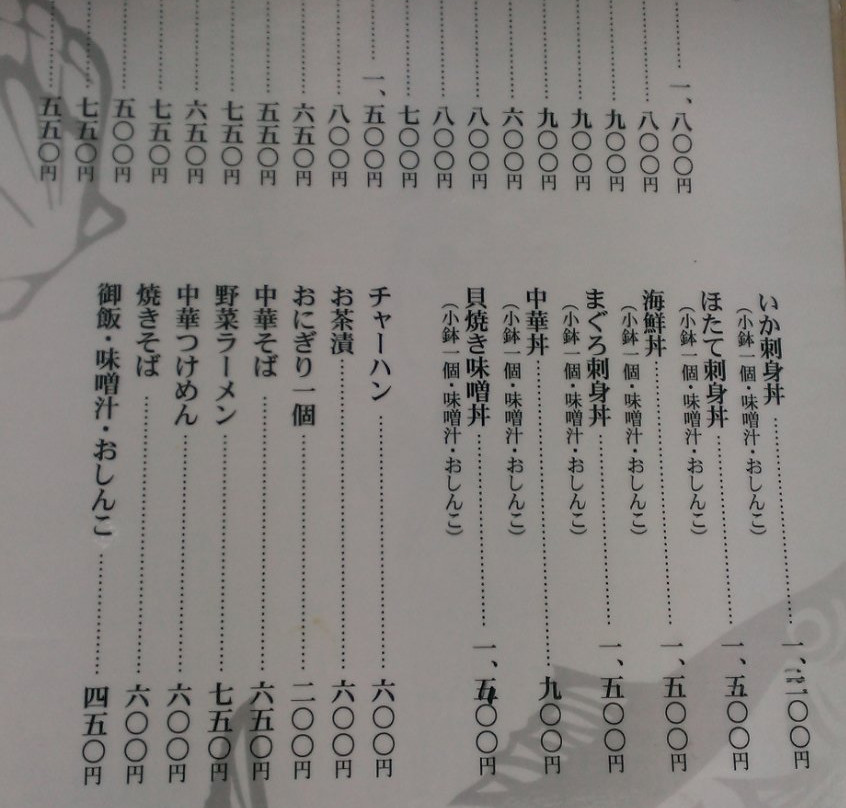 一、八〇〇円
八〇〇円
九〇〇円
九〇〇円
九〇〇円
六〇〇円
八〇〇円
八〇〇円
七〇〇円
一、五〇〇円
八〇〇円
六五〇円
五五〇円
七五〇円
六五〇円
七五〇円
五〇〇円
七五〇円
五五〇円
いか刺身丼
(小鉢一個・味噌汁・おしんこ)
ほたて刺身丼 一、五〇〇円
(小鉢一個・味噌汁・おしんこ)
海鮮丼 一、五〇〇円
(小鉢一個・味噌汁・おしんこ)
まぐろ刺身丼 一、五〇〇円
(小鉢一個・味噌汁・おしんこ)
中華丼 九〇〇円
(小鉢一個・味噌汁・おしんこ)
貝焼き味噌丼
(小鉢一個・味噌汁・おしんこ)
チャーハン 六〇〇円
お茶漬 六〇〇円
おにぎり一個 二〇〇円
中華そば 六五〇円
野菜ラーメン 七五〇円
中華つけめん 六〇〇円
焼きそば 六〇〇円
御飯・味噌汁・おしんこ 四五〇円